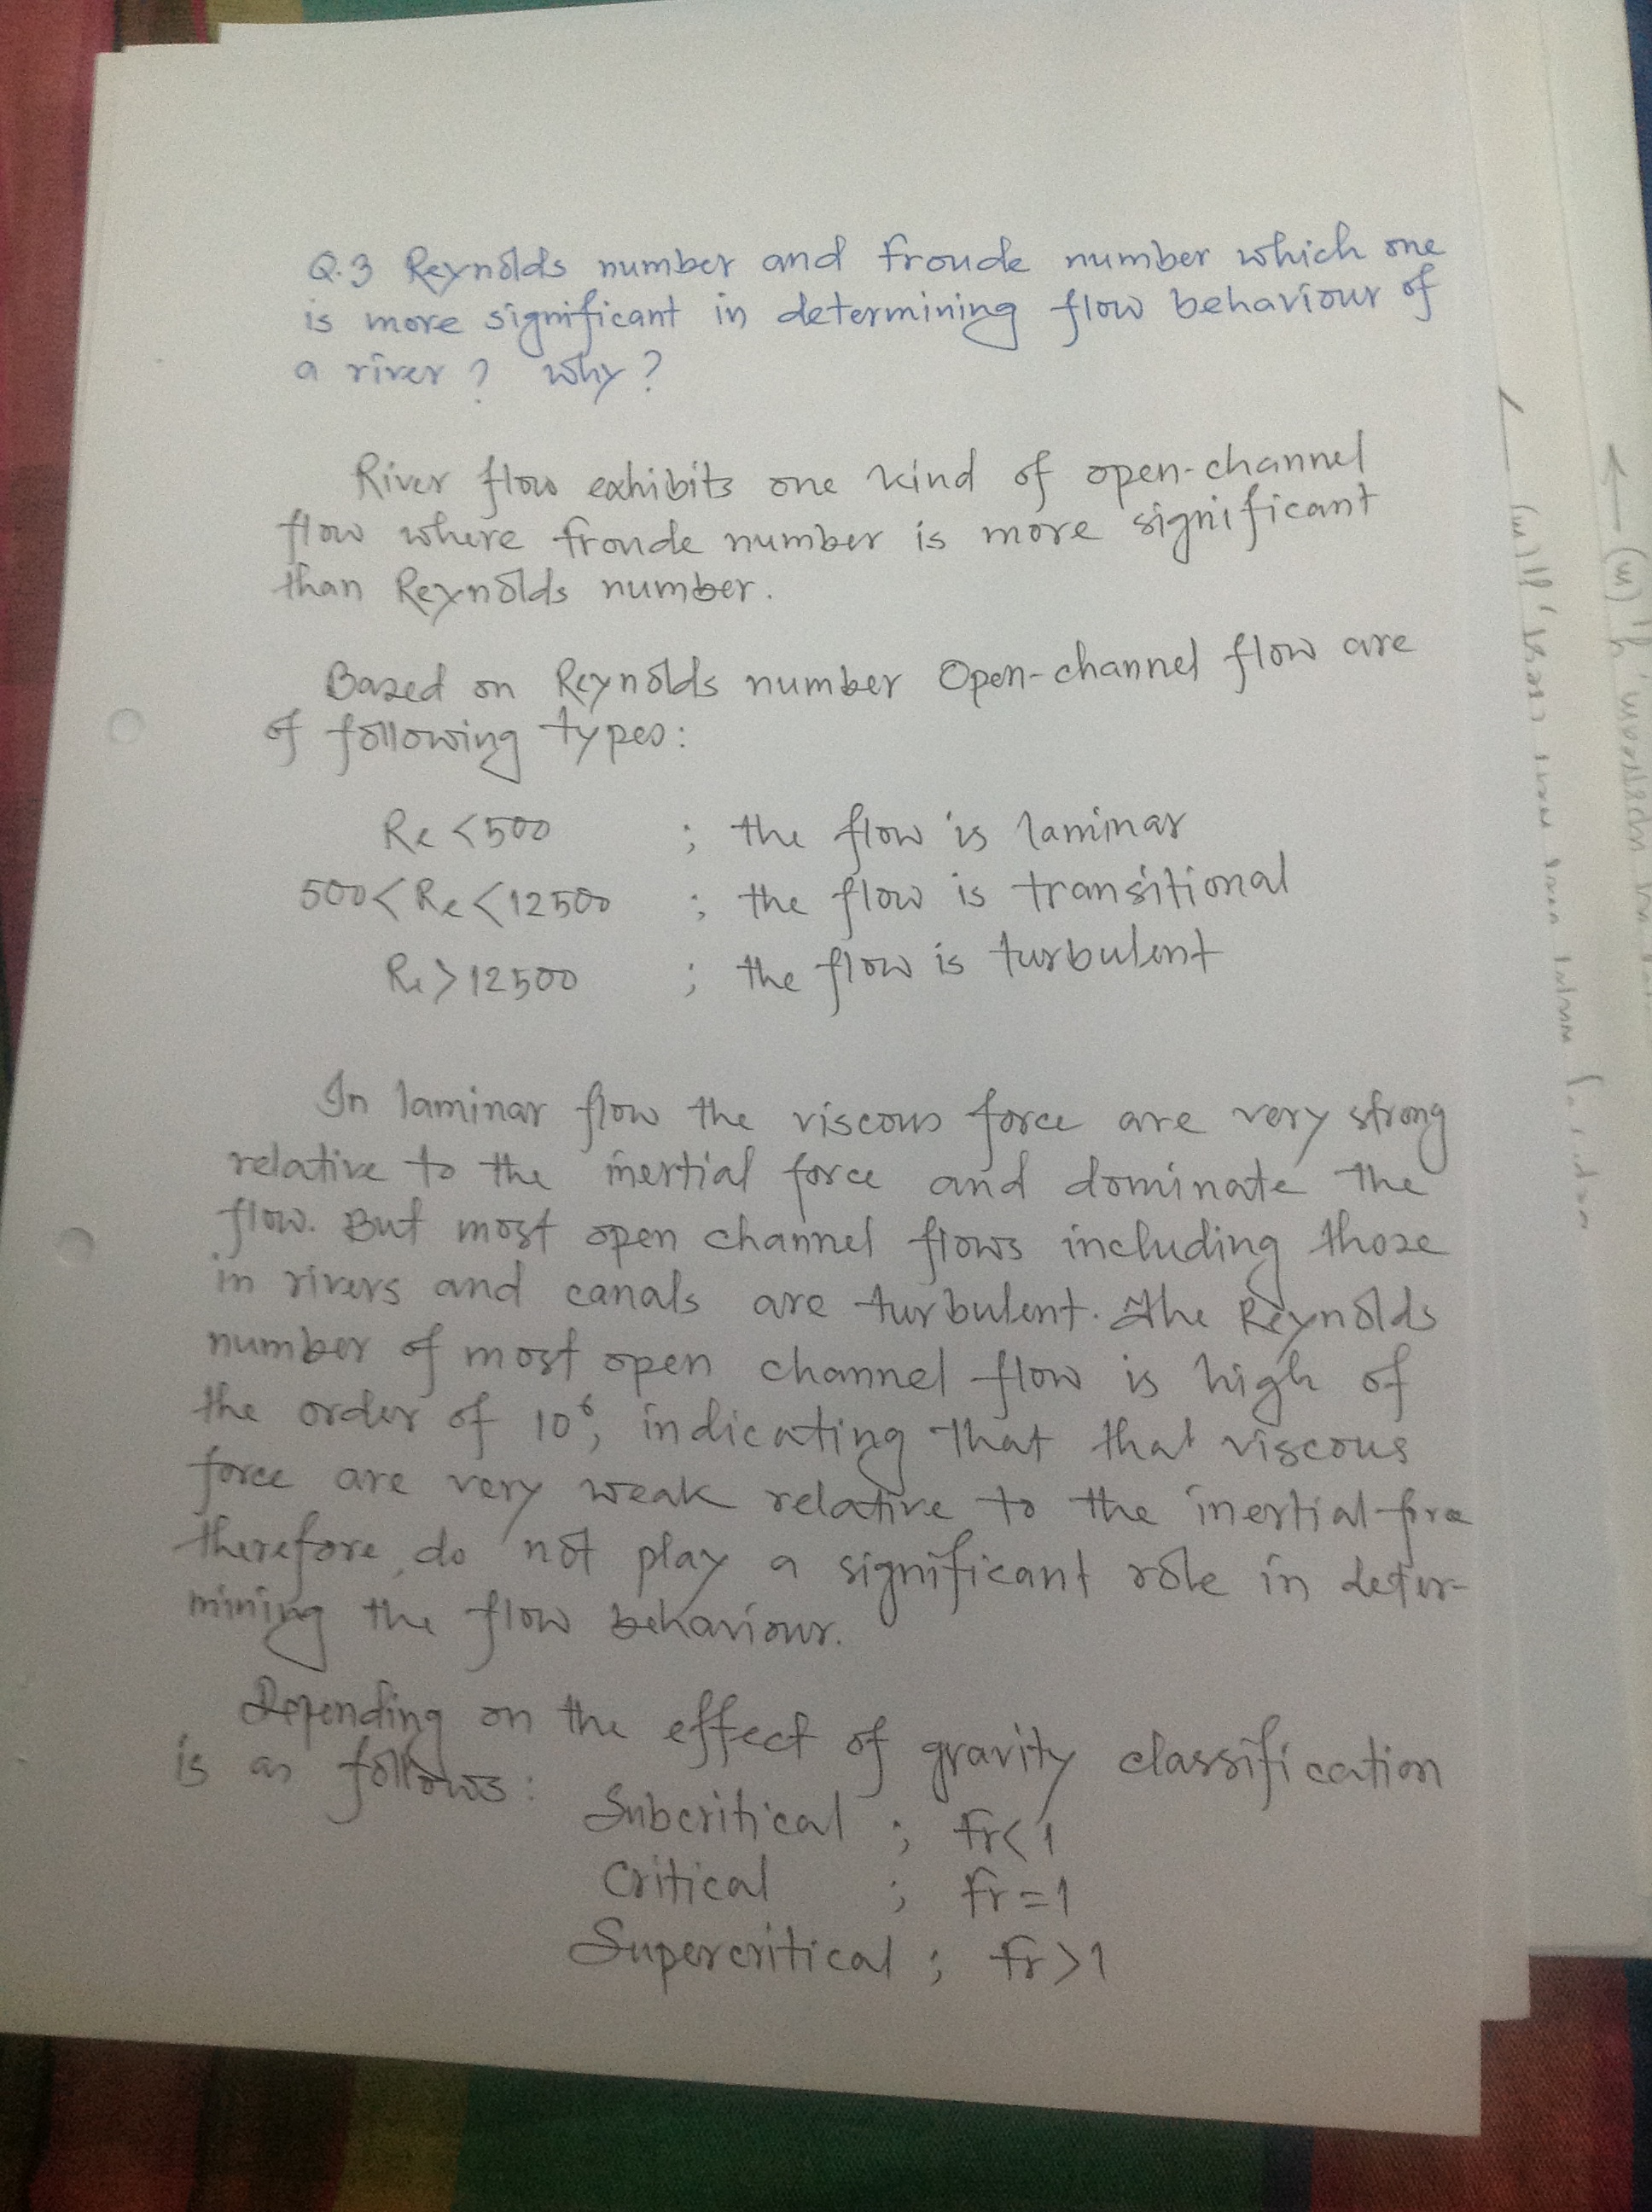 Q.3 Reynolds number and froude number which one
is more significant in determining flow behaviour of
a river ? Why ?
River flow exhibits one kind of open-channel
flow where froude number is more significant
than Reynolds number.
Based on Reynolds number Open-channel flow are
of following types:
Re <500 ; the flow is laminar
500< Re <12500 ; the flow is transitional
Re >12500 ; the flow is turbulent
In laminar flow the viscous force are very strong
relative to the inertial force and dominate the
flow. But most open channel flows including those
in rivers and canals are turbulent. The Reynolds
number of most open channel flow is high of
the order of 10⁶, indicating that that viscous
force are very weak relative to the inertial force
therefore, do not play a significant role in deter-
mining the flow behaviour.
Depending on the effect of gravity classification
is as follows:
Subcritical ; fr< 1
Critical ; fr=1
Supercritical ; fr>1